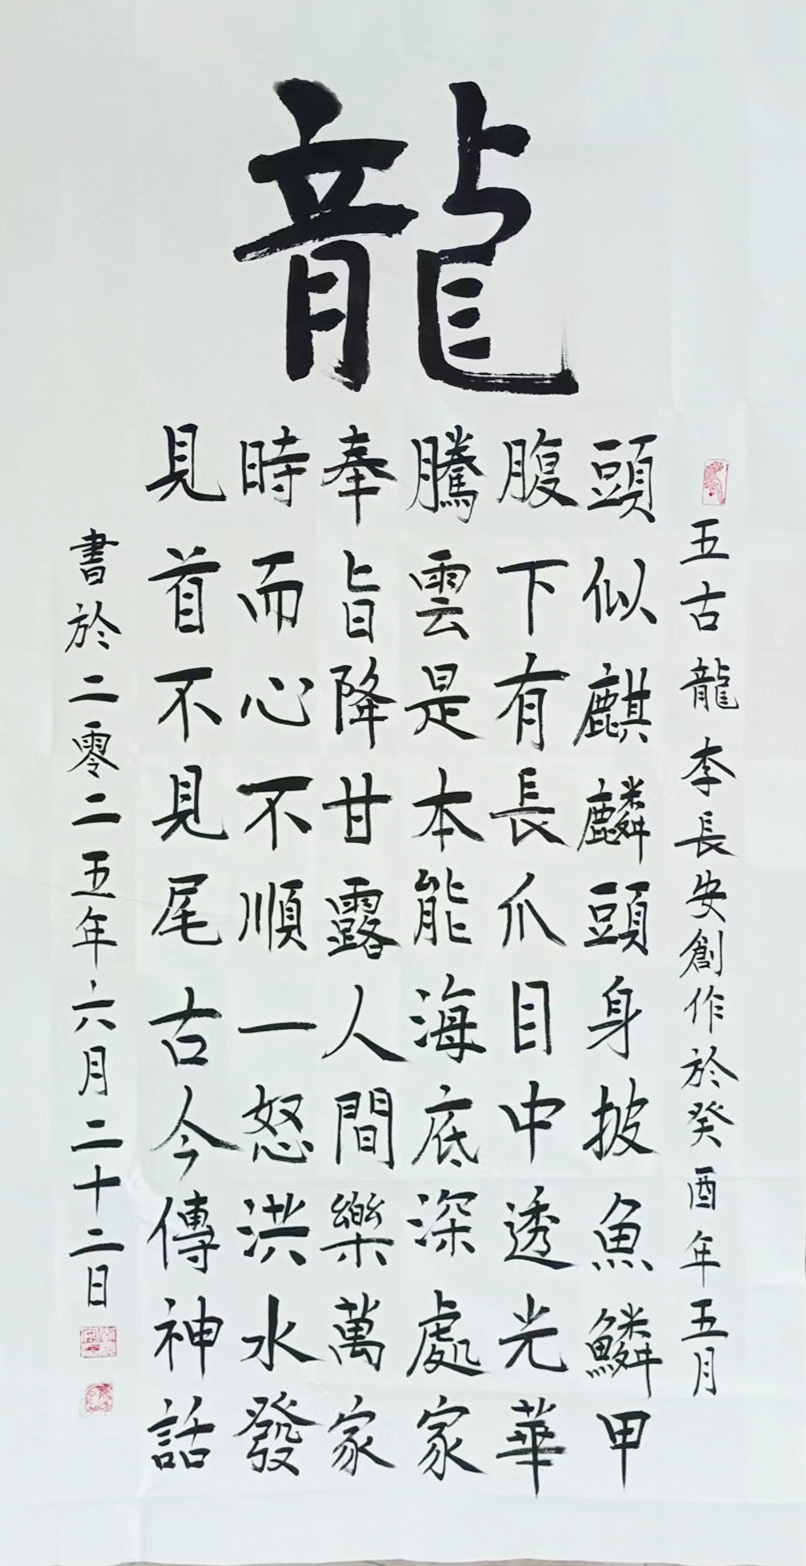 龍
五古龍李長安創作於癸酉年五月
頭似麒麟頭身披魚鱗甲
腹下有長爪目中透光華
騰雲是本能海底深處家
奉旨降甘露人間樂萬家
時而心不順一怒洪水發
見首不見尾古今傳神話
書於二零二五年六月二十二日